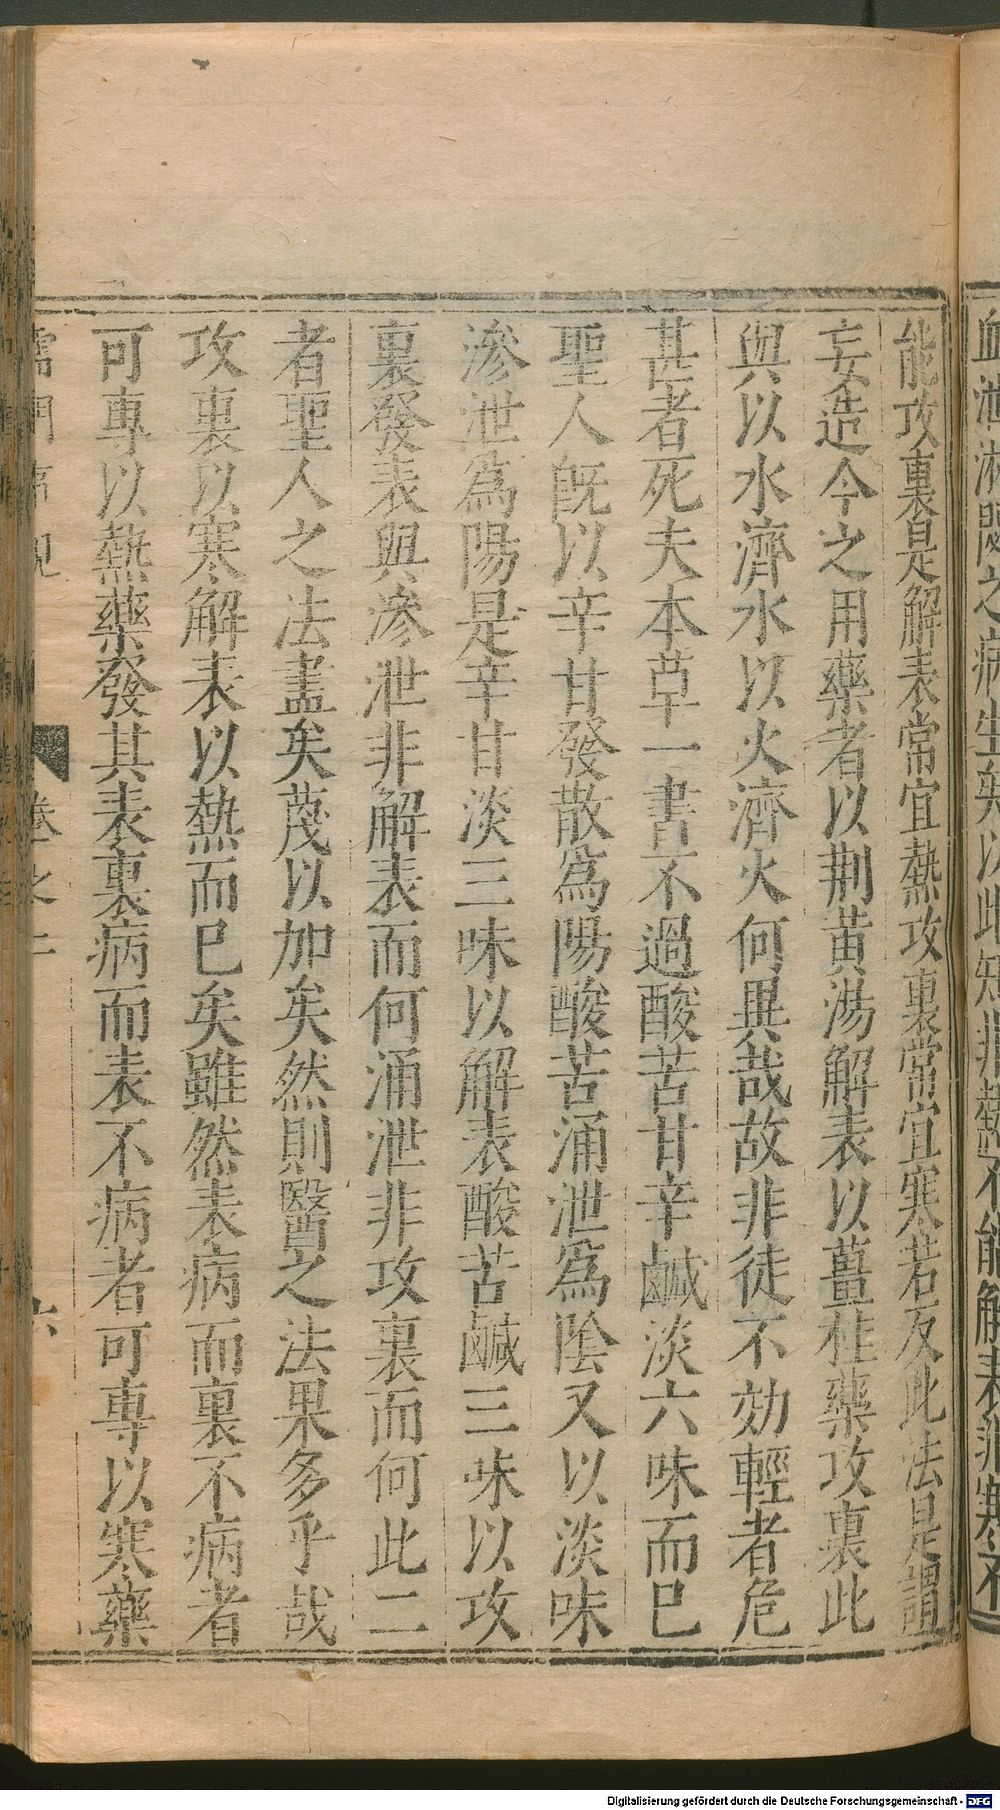 血淋閉之病生矣以此知非熱不能解表非寒不
能攻裏是解表常宜熱攻裏常宜寒若反此法是謂
妄造今之用藥者以荆黃湯解表以薑桂藥攻裏此
與以水濟水以火濟火何異哉故非徒不効輕者危
甚者死夫本草一書不過酸苦甘辛鹹淡六味而巳
聖人旣以辛甘發散爲陽酸苦涌泄爲陰又以淡味
滲泄爲陽是辛甘淡三味以解表酸苦鹹三味以攻
裏發表與滲泄非解表而何涌泄非攻裏而何此二
者聖人之法盡矣蔑以加矣然則醫之法果多乎哉
攻裏以寒解表以熱而巳矣雖然表病而裏不病者
可專以熱藥發其表裏病而表不病者可專以寒藥
儒門事親 卷之二 六
Digitalisierung gefördert durch die Deutsche Forschungsgemeinschaft - DFG